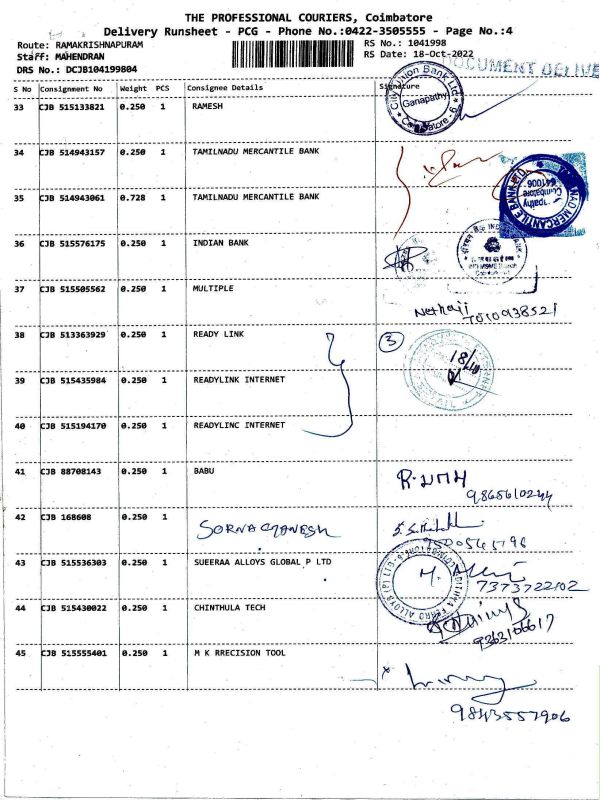 THE PROFESSIONAL COURIERS, Coimbatore
Delivery Runsheet - PCG - Phone No.:0422-3505555 - Page No.:4
Route: RAMAKRISHNAPURAM
RS No.: 1041998
Staff: MAHENDRAN
RS Date: 18-Oct-2022
DOCUMENT DELIVE
DRS No.: DCJB104199804
S No Consignment No Weight PCS Consignee Details Signature
33 CJB 515133821 0.250 1 RAMESH
City Union Bank Ltd
Ganapathy
34 CJB 514943157 0.250 1 TAMILNADU MERCANTILE BANK
35 CJB 514943061 0.728 1 TAMILNADU MERCANTILE BANK
641006
Coimbatore
36 CJB 515576175 0.250 1 INDIAN BANK
37 CJB 515505562 0.250 1 MULTIPLE
Nethaji
7010938521
38 CJB 513363929 0.250 1 READY LINK
3
18/10
39 CJB 515435984 0.250 1 READYLINK INTERNET
40 CJB 515194170 0.250 1 READYLINC INTERNET
41 CJB 88708143 0.250 1 BABU
9865610244
42 CJB 168608 0.250 1 SORNA GANESH
9500545796
43 CJB 515536303 0.250 1 SUEERAA ALLOYS GLOBAL P LTD
7373722102
44 CJB 515430022 0.250 1 CHINTHULA TECH
9363106617
45 CJB 515555401 0.250 1 M K RRECISION TOOL
9843557906